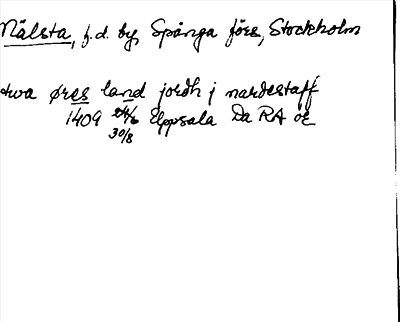 Nälsta, f.d. by, Spånga förs, Stockholm
twa øres land jordh j nardestaff
1409 Uppsala Da RA or
30/8